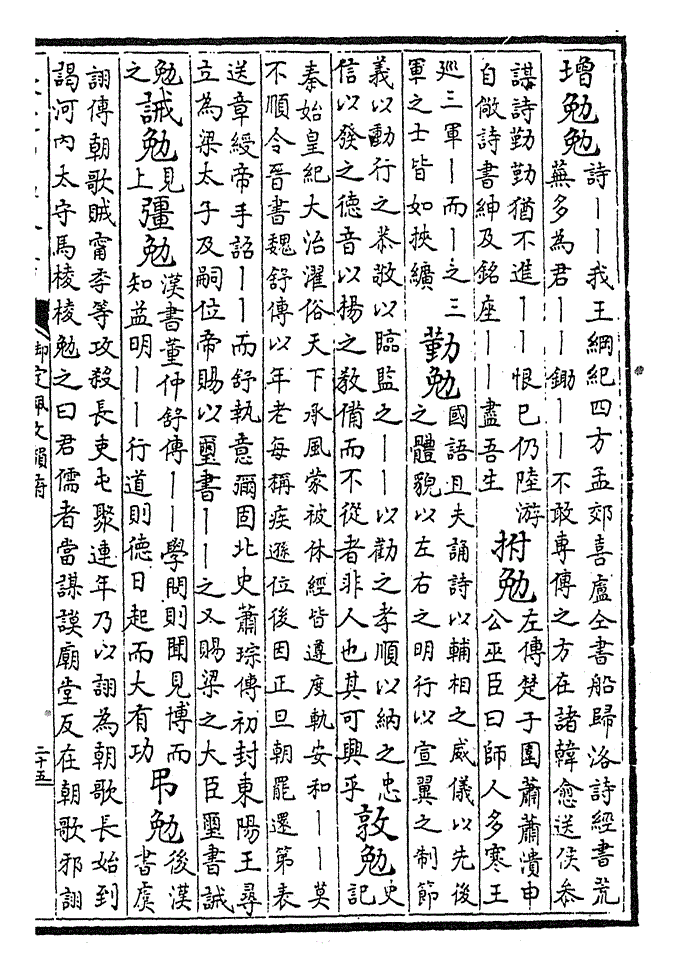 增勉勉詩丨丨我王綱紀四方孟郊喜盧仝書船歸洛詩經書荒
蕪多為君丨丨鋤丨丨不敢專傳之方在諸韓愈送侯參
謀詩勤勤猶不進丨丨恨已仍陸游
自儆詩書紳及銘座丨丨盡吾生
拊勉左傳楚子圍蕭蕭潰申
公巫臣曰師人多寒王
巡三軍丨而丨之三
軍之士皆如挾纊
勤勉國語且夫誦詩以輔相之威儀以先後
之體貌以左右之明行以宣翼之制節
義以動行之恭敬以臨監之丨丨以勸之孝順以納之忠
信以發之德音以揚之教備而不從者非人也其可興乎
敦勉史
記
秦始皇紀大治濯俗天下承風蒙被休經皆遵度軌安和丨丨莫
不順令晉書魏舒傳以年老每稱疾遜位後因正旦朝罷還第表
送章綬帝手詔丨丨而舒執意彌固北史蕭琮傳初封東陽王尋
立為梁太子及嗣位帝賜以璽書丨丨之又賜梁之大臣璽書誡
勉
之
誡勉見
上
彊勉漢書董仲舒傳丨丨學問則聞見博而
知益明丨丨行道則德日起而大有功
弔勉後漢
書虞
詡傳朝歌賊甯季等攻殺長吏屯聚連年乃以詡為朝歌長始到
謁河內太守馬棱棱勉之曰君儒者當謀謨廟堂反在朝歌邪詡
御定佩文韻府
二十五